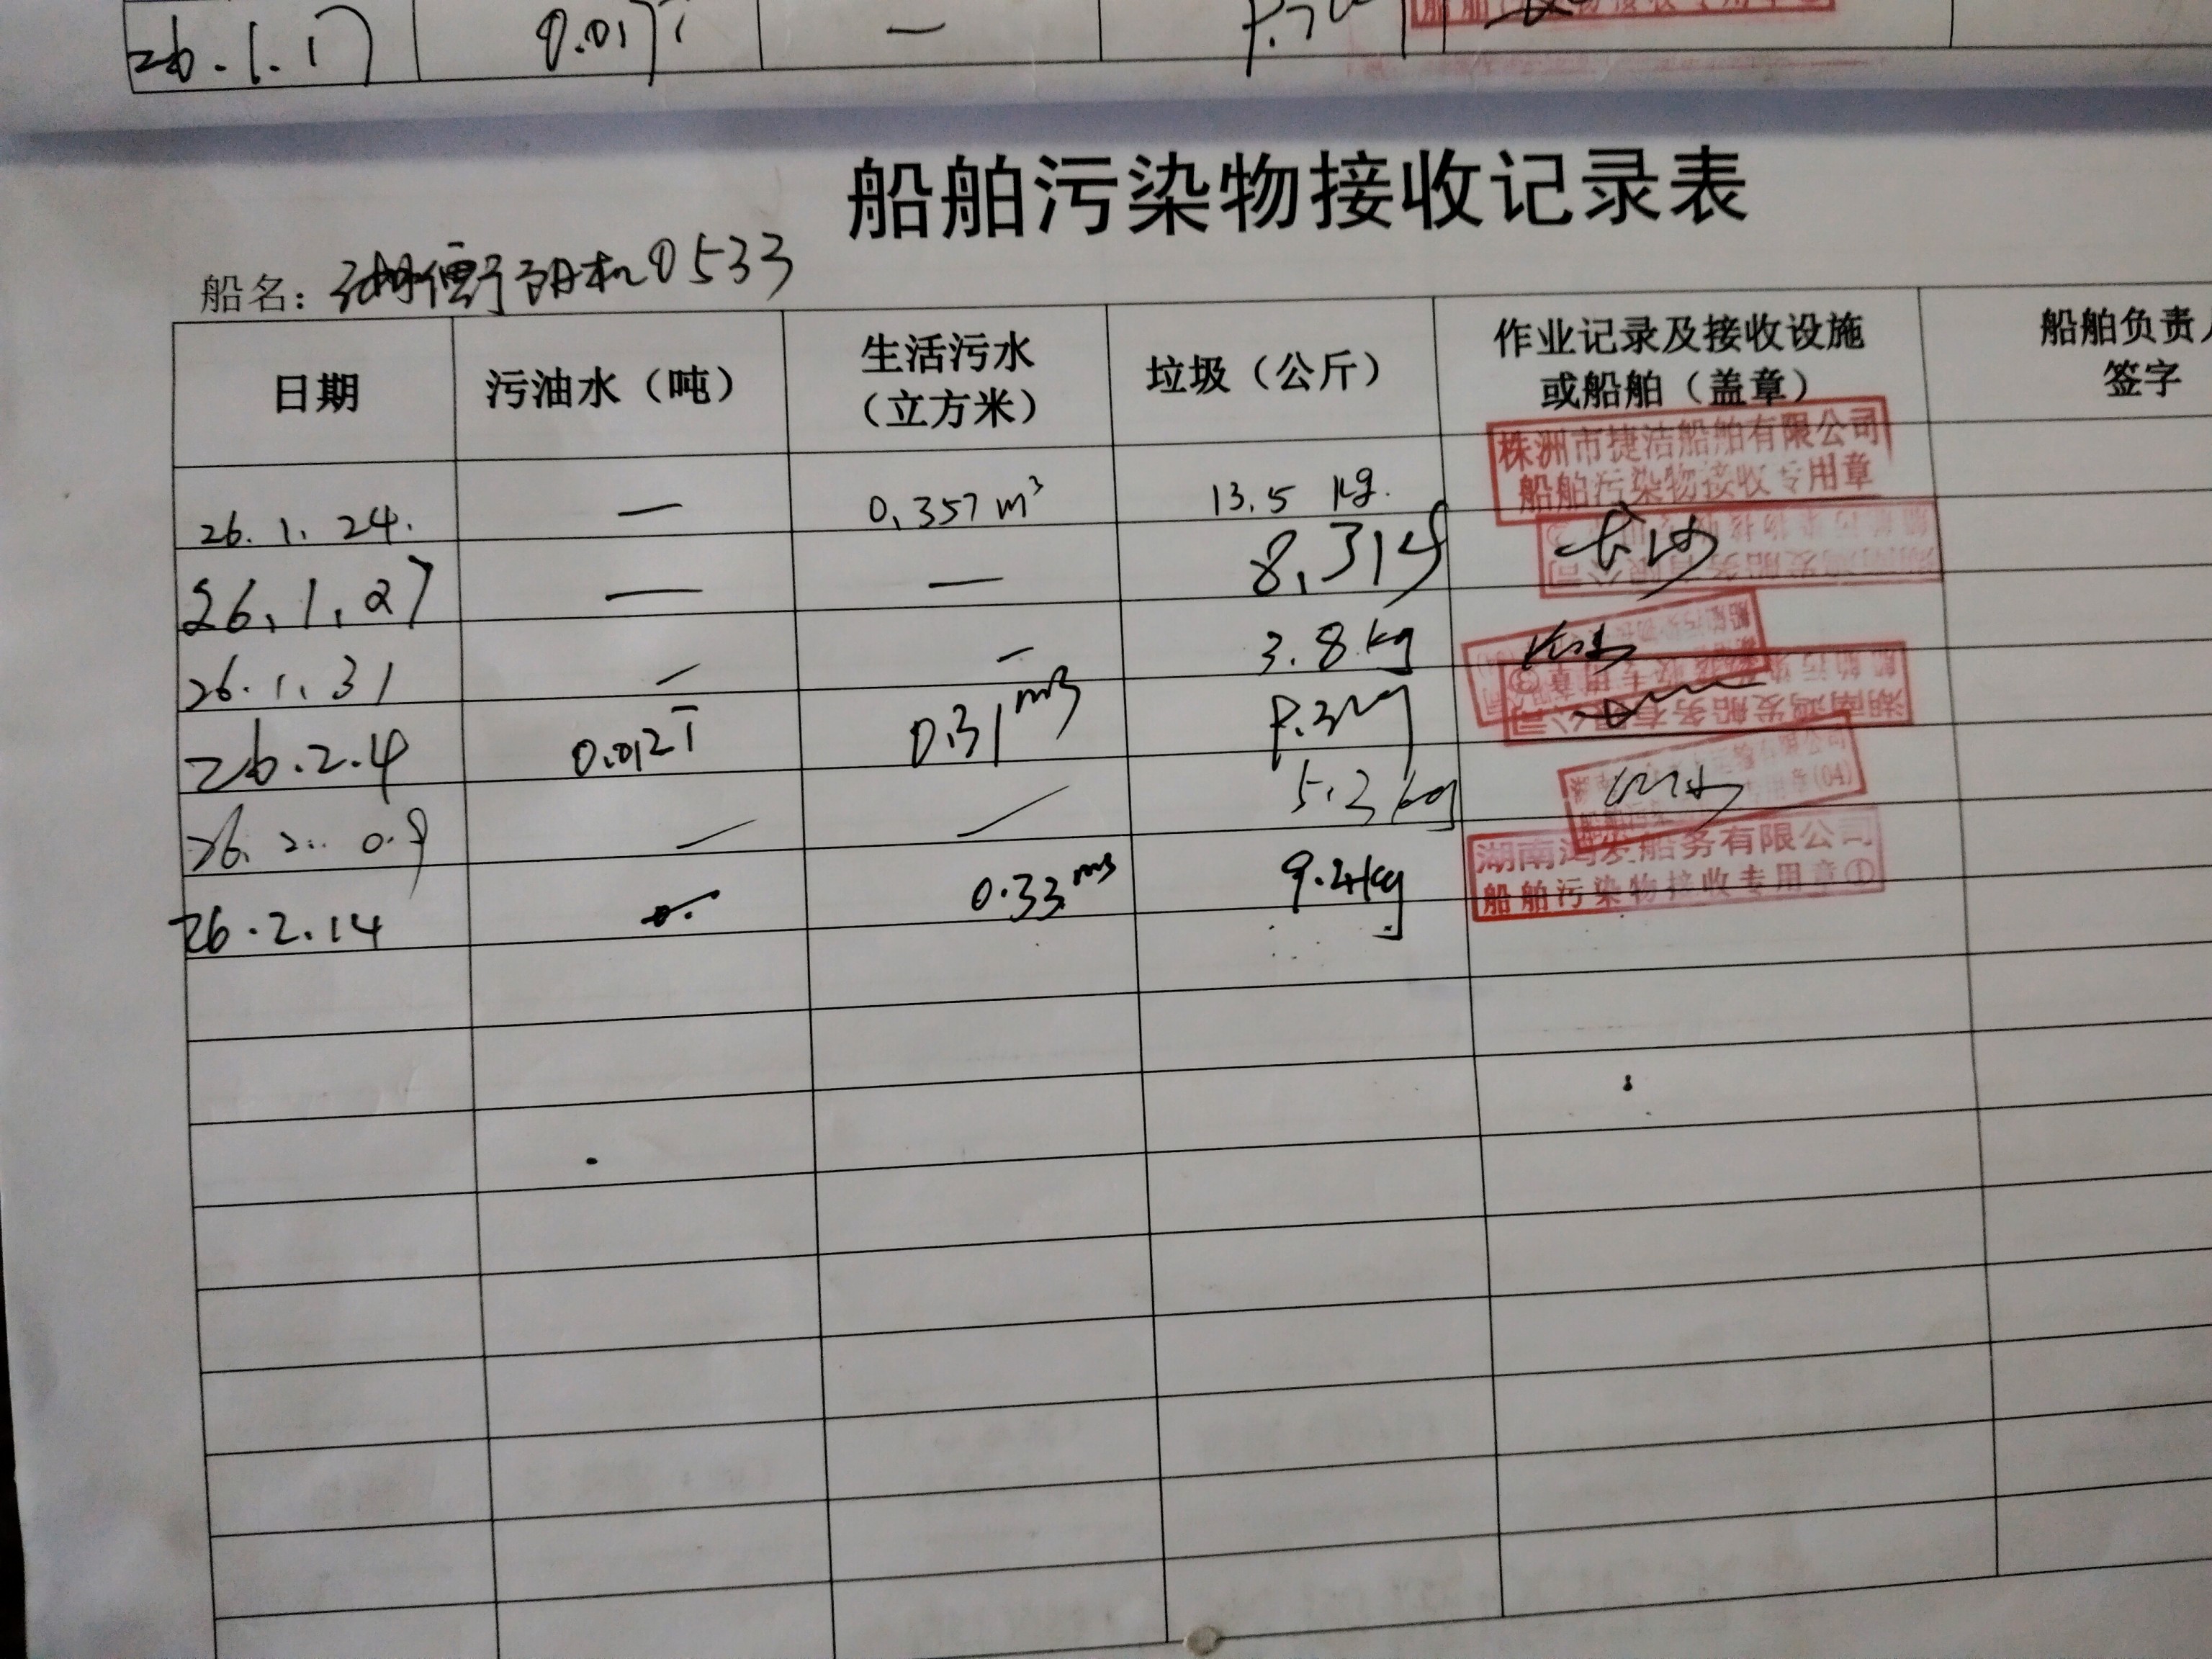 26.1.17 0.017T —
船舶污染物接收记录表
船名: 湖衡阳机0533
日期 污油水（吨） 生活污水（立方米） 垃圾（公斤） 作业记录及接收设施或船舶（盖章） 船舶负责人签字
26.1.24. — 0.357m³ 13.5 kg. 株洲市捷洁船舶有限公司 船舶污染物接收专用章
26.1.27 — — 长沙
26.1.31 — — 3.8kg 长沙
26.2.4 0.012T 0.31m3 湖南鸿发船务有限公司
5.2kg (04)
26.2.14 0.33m3 9.4kg 湖南鸿发船务有限公司 船舶污染物接收专用章①